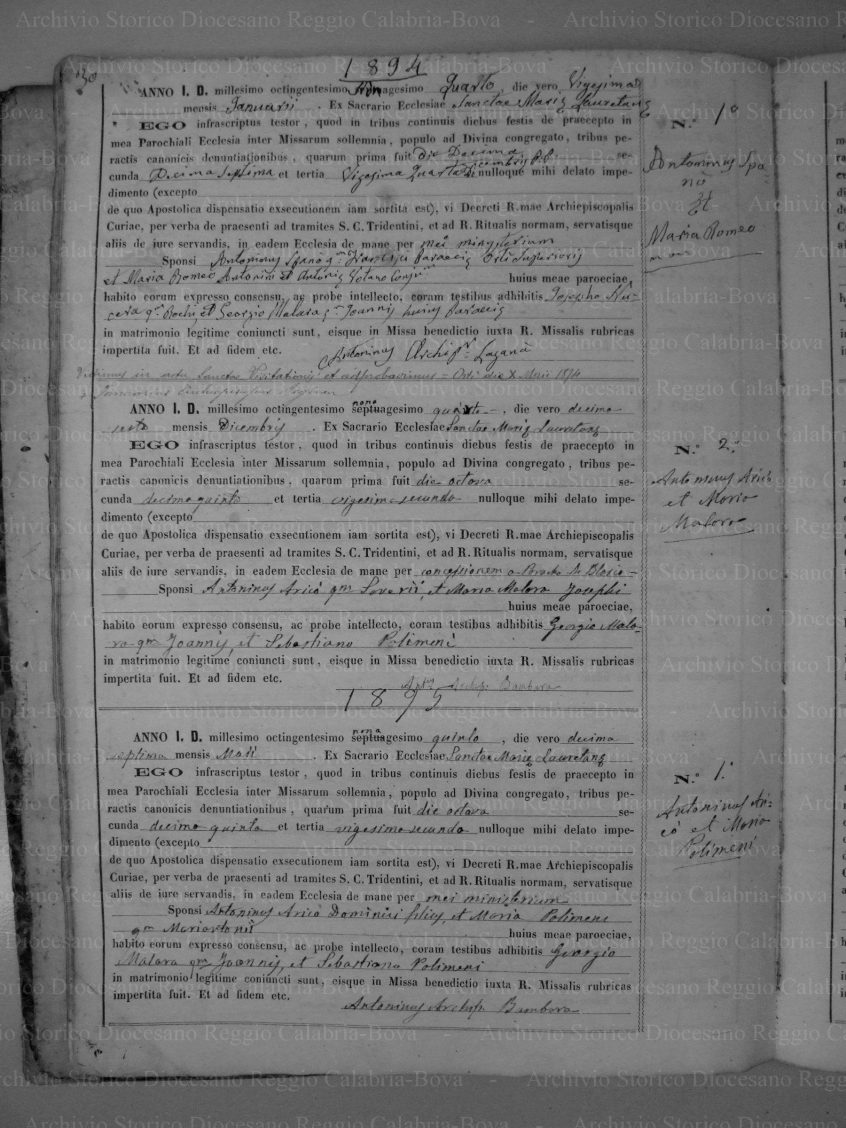 Archivio Storico Diocesano Reggio Calabria-Bova
30
1894
ANNO I. D. millesimo octingentesimo Nonagesimo Quarto, die vero Vigesima
mensis Januarii. Ex Sacrario Ecclesiae Sanctae Marię Lauretanę
EGO infrascriptus testor, quod in tribus continuis diebus festis de praecepto in
mea Parochiali Ecclesia inter Missarum sollemnia, populo ad Divina congregato, tribus pe-
ractis canonicis denuntiationibus, quarum prima fuit die Decima se-
cunda Decima Septima et tertia Vigesima Quarta Decembris p.p. nulloque mihi delato impe-
dimento (excepto
de quo Apostolica dispensatio exsecutionem iam sortita est), vi Decreti R.mae Archiepiscopalis
Curiae, per verba de praesenti ad tramites S. C. Tridentini, et ad R. Ritualis normam, servatisque
aliis de iure servandis, in eadem Ecclesia de mane per mei ministerium
Sponsi Antoninus Spanò qm Francisci Paraecię Ortisuperioris
et Maria Romeo Antonini et Antonię Votano Conjm huius meae paroeciae,
habito eorum expresso consensu, ac probe intellecto, coram testibus adhibitis Josepho Nu-
cera qm Rochi et Georgio Malara qm Joannis hujus Paraecię
in matrimonio legitime coniuncti sunt, eisque in Missa benedictio iuxta R. Missalis rubricas
impertita fuit. Et ad fidem etc.
Antoninus Archipr Laganà
Vidimus in actu Sanctae Visitationis et adprobavimus = Orti die X Maii 1894
N.º 1º
Antoninus Spa-
nò
Et
Maria Romeo
ANNO I. D. millesimo octingentesimo septuagesimo nona quarto, die vero decimo
sexto mensis Dicembris. Ex Sacrario Ecclesiae Sanctae Marię Lauretanę
EGO infrascriptus testor, quod in tribus continuis diebus festis de praecepto in
mea Parochiali Ecclesia inter Missarum sollemnia, populo ad Divina congregato, tribus pe-
ractis canonicis denuntiationibus, quarum prima fuit die octava se-
cunda decimo quinto et tertia vigesimo secundo nulloque mihi delato impe-
dimento (excepto
de quo Apostolica dispensatio exsecutionem iam sortita est), vi Decreti R.mae Archiepiscopalis
Curiae, per verba de praesenti ad tramites S. C. Tridentini, et ad R. Ritualis normam, servatisque
aliis de iure servandis, in eadem Ecclesia de mane per concessionem a
Sponsi Antoninus Aricò qm Saverii, et Maria Malara Josephi
huius meae paroeciae,
habito eorum expresso consensu, ac probe intellecto, coram testibus adhibitis Georgio Mala-
ra qm Joannis, et Sebastiano Polimeni
in matrimonio legitime coniuncti sunt, eisque in Missa benedictio iuxta R. Missalis rubricas
impertita fuit. Et ad fidem etc.
Antus Archip. Bambara
N.º 2.º
Antoninus Aricò
et Maria
Malara
1895
ANNO I. D. millesimo octingentesimo septuagesimo nona quinto, die vero decimo
septimo mensis Madi. Ex Sacrario Ecclesiae Sanctae Marię Lauretanę
EGO infrascriptus testor, quod in tribus continuis diebus festis de praecepto in
mea Parochiali Ecclesia inter Missarum sollemnia, populo ad Divina congregato, tribus pe-
ractis canonicis denuntiationibus, quarum prima fuit die octava se-
cunda decimo quinto et tertia vigesimo secundo nulloque mihi delato impe-
dimento (excepto
de quo Apostolica dispensatio exsecutionem iam sortita est), vi Decreti R.mae Archiepiscopalis
Curiae, per verba de praesenti ad tramites S. C. Tridentini, et ad R. Ritualis normam, servatisque
aliis de iure servandis, in eadem Ecclesia de mane per mei ministerium
Sponsi Antoninus Aricò Dominici filius, et Maria Polimeni
qm Mariantonii huius meae paroeciae,
habito eorum expresso consensu, ac probe intellecto, coram testibus adhibitis Georgio
Malara qm Joannis, et Sebastiano Polimeni
in matrimonio legitime coniuncti sunt, eisque in Missa benedictio iuxta R. Missalis rubricas
impertita fuit. Et ad fidem etc.
Antoninus Archip. Bambara
N.º 1.º
Antoninus Ari-
cò et Maria
Polimeni